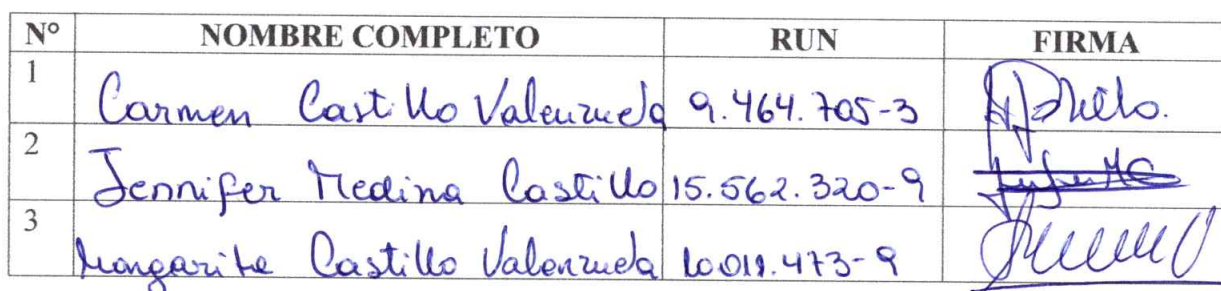 N° NOMBRE COMPLETO RUN FIRMA
1 Carmen Castillo Valenzuela 9.464.705-3
2 Jennifer Medina Castillo 15.562.320-9
3 Margarita Castillo Valenzuela 10.011.473-9